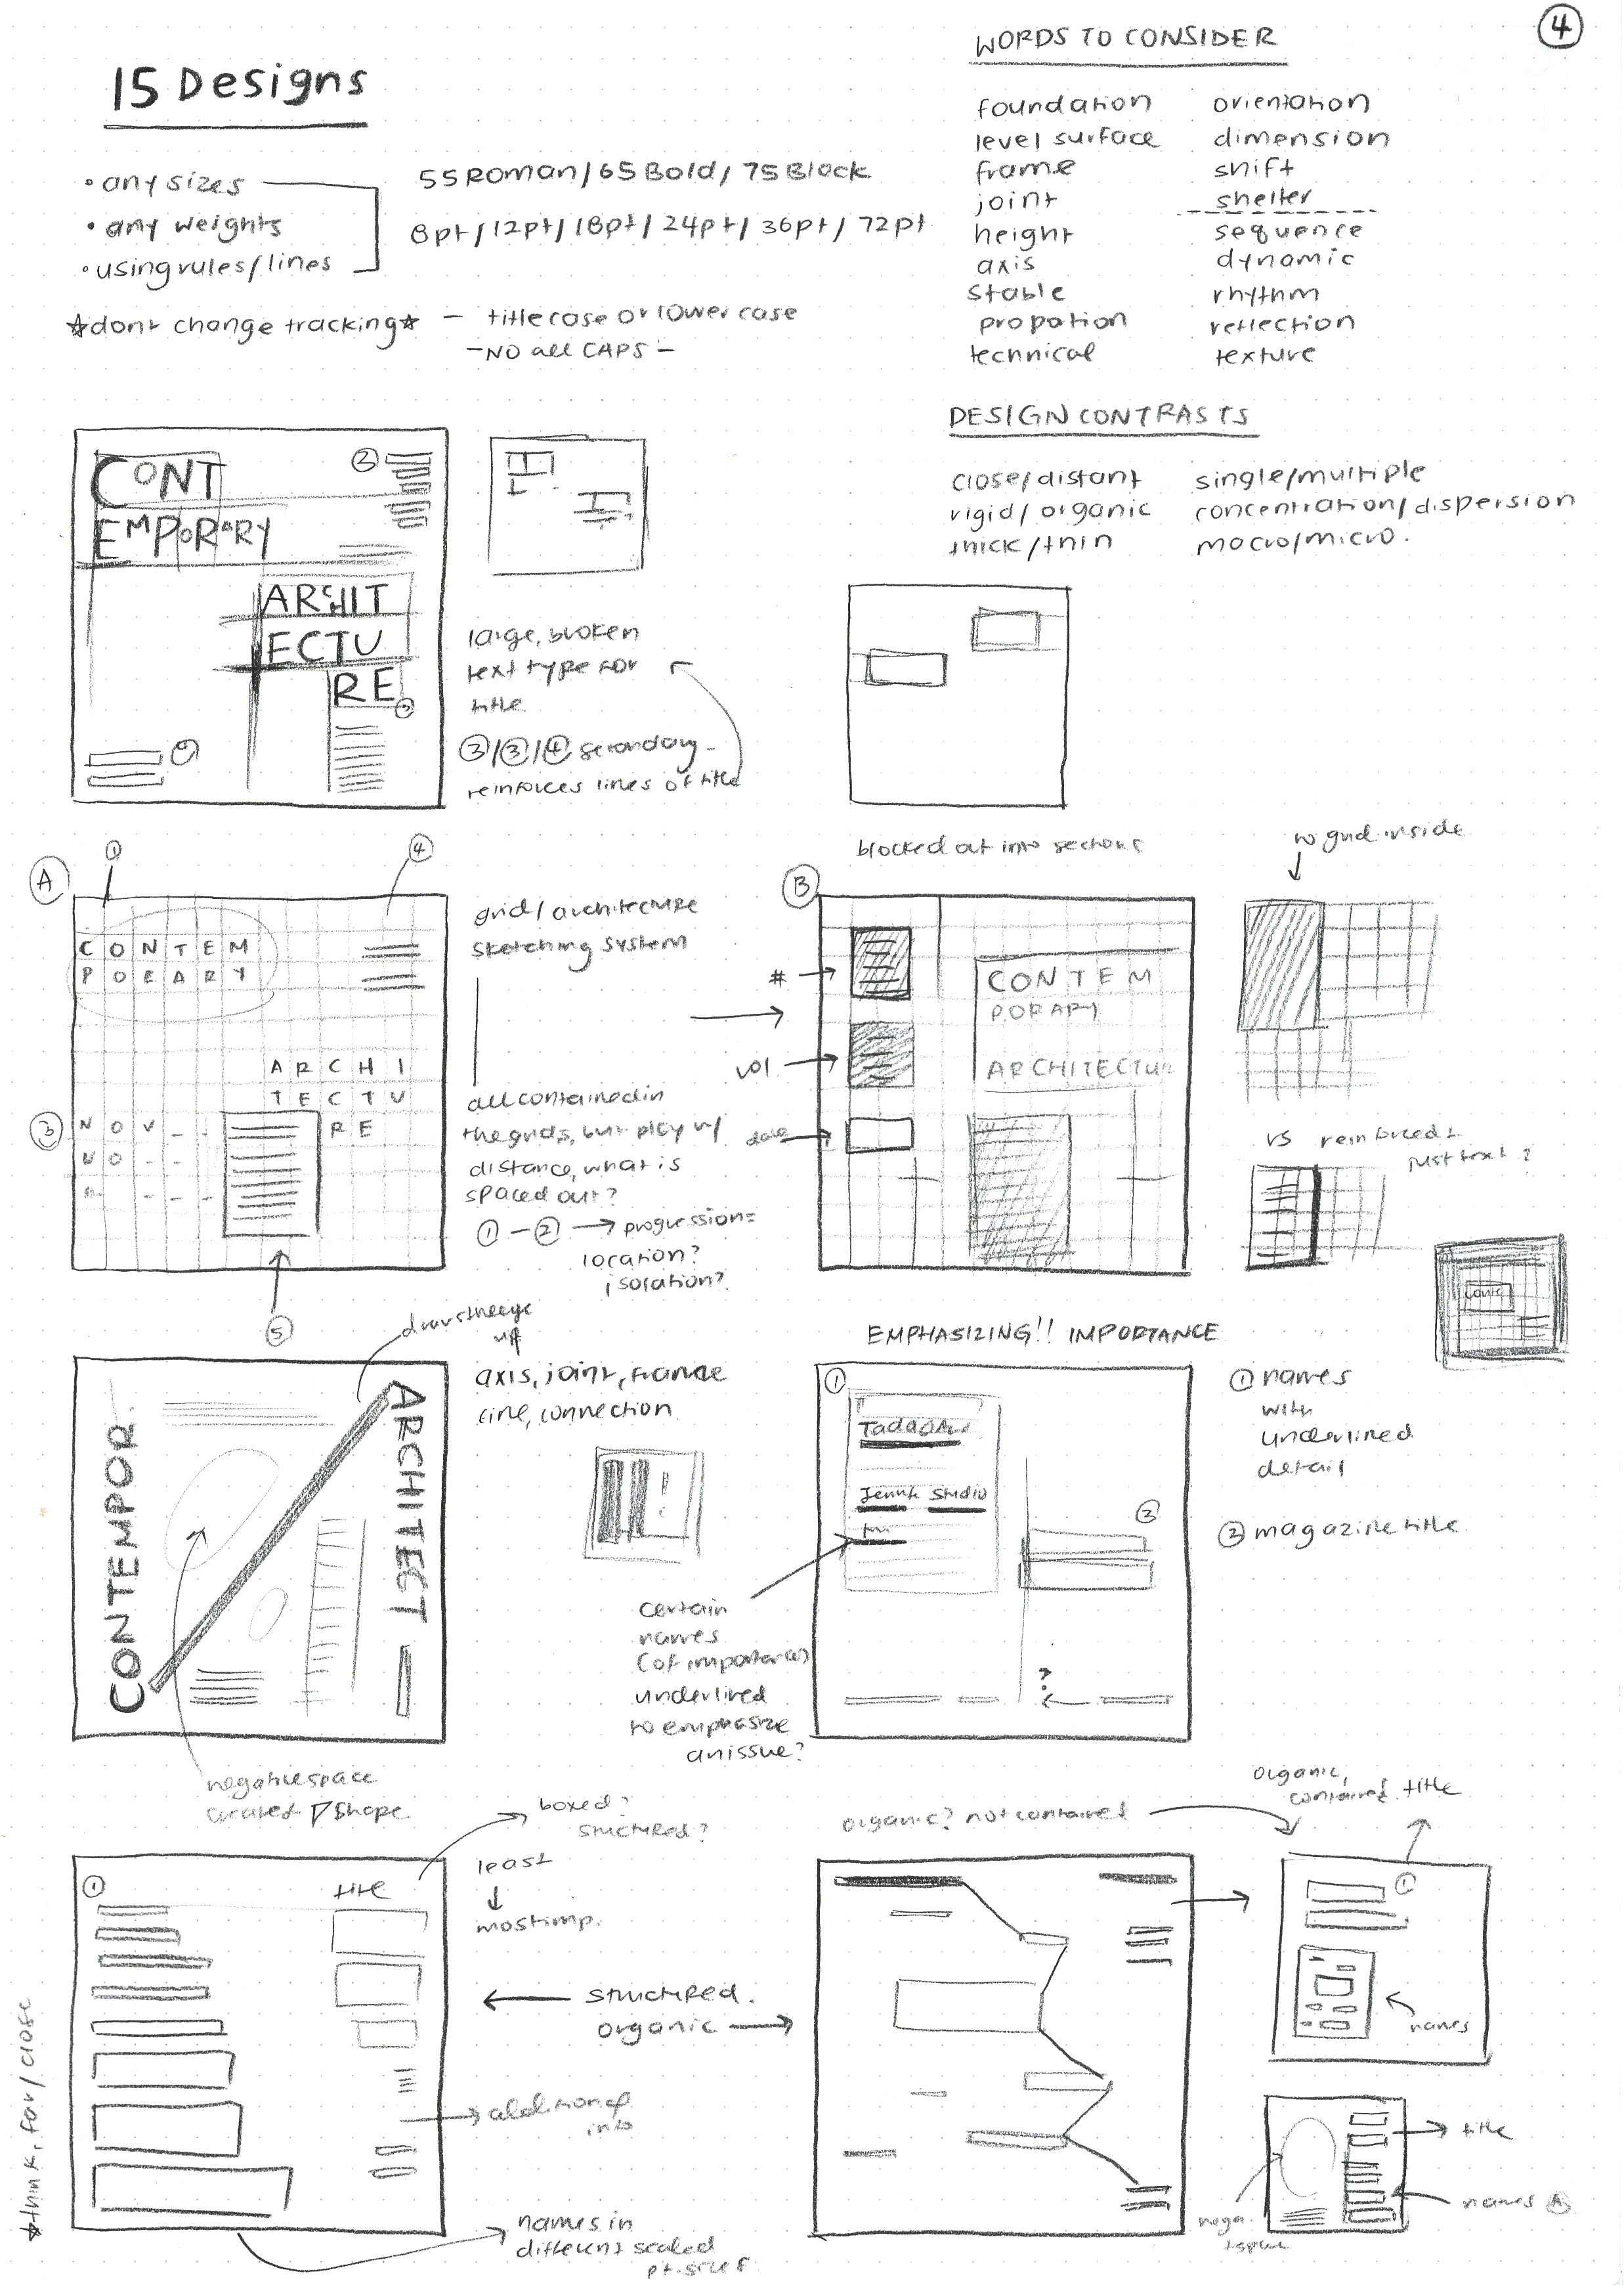 4
15 Designs
• any sizes
• any weights
• using rules/lines
55 Roman / 65 Bold / 75 Black
8pt / 12pt / 18pt / 24pt / 36pt / 72pt
☆dont change tracking☆ — title case or lower case
—NO all CAPS—
WORDS TO CONSIDER
foundation orientation
level surface dimension
frame shift
joint shelter
height sequence
axis dynamic
stable rhythm
propotion reflection
technical texture
DESIGN CONTRASTS
close/distant single/multiple
rigid/organic concentration/dispersion
thick/thin macro/micro.
CONT
EMPORARY
2
ARCHIT
ECTU
RE
large, broken
text type for
title
3/3/4 secondary
reinforces lines of title
A
1
4
CONTEM
PORARY
ARCHI
TECTU
RE
3
NOV
5
grid/architecture
sketching system
all contained in
the grids, but play w/
distance, what is
spaced out?
1 — 2 → progression=
location?
isolation?
blocked out into sections
B
#
vol
date
CONTEM
PORARY
ARCHITECTU
w grid inside
vs reinforced +
just text?
CONTEMPOR
ARCHITECT
axis, joint, frame
line, connection
negative space
created shape
EMPHASIZING!! IMPORTANCE
1
Studio
2
?
1 names
with
underlined
detail
2 magazine title
certain
names
(of importance)
underlined
to emphasize
an issue?
boxed?
structured?
1
title
least
↓
most imp.
← structured.
organic →
additional
info
names in
different scaled
pt. sizes
☆think, far/close
organic? not contained
organic,
contained title
1
names
title
names A